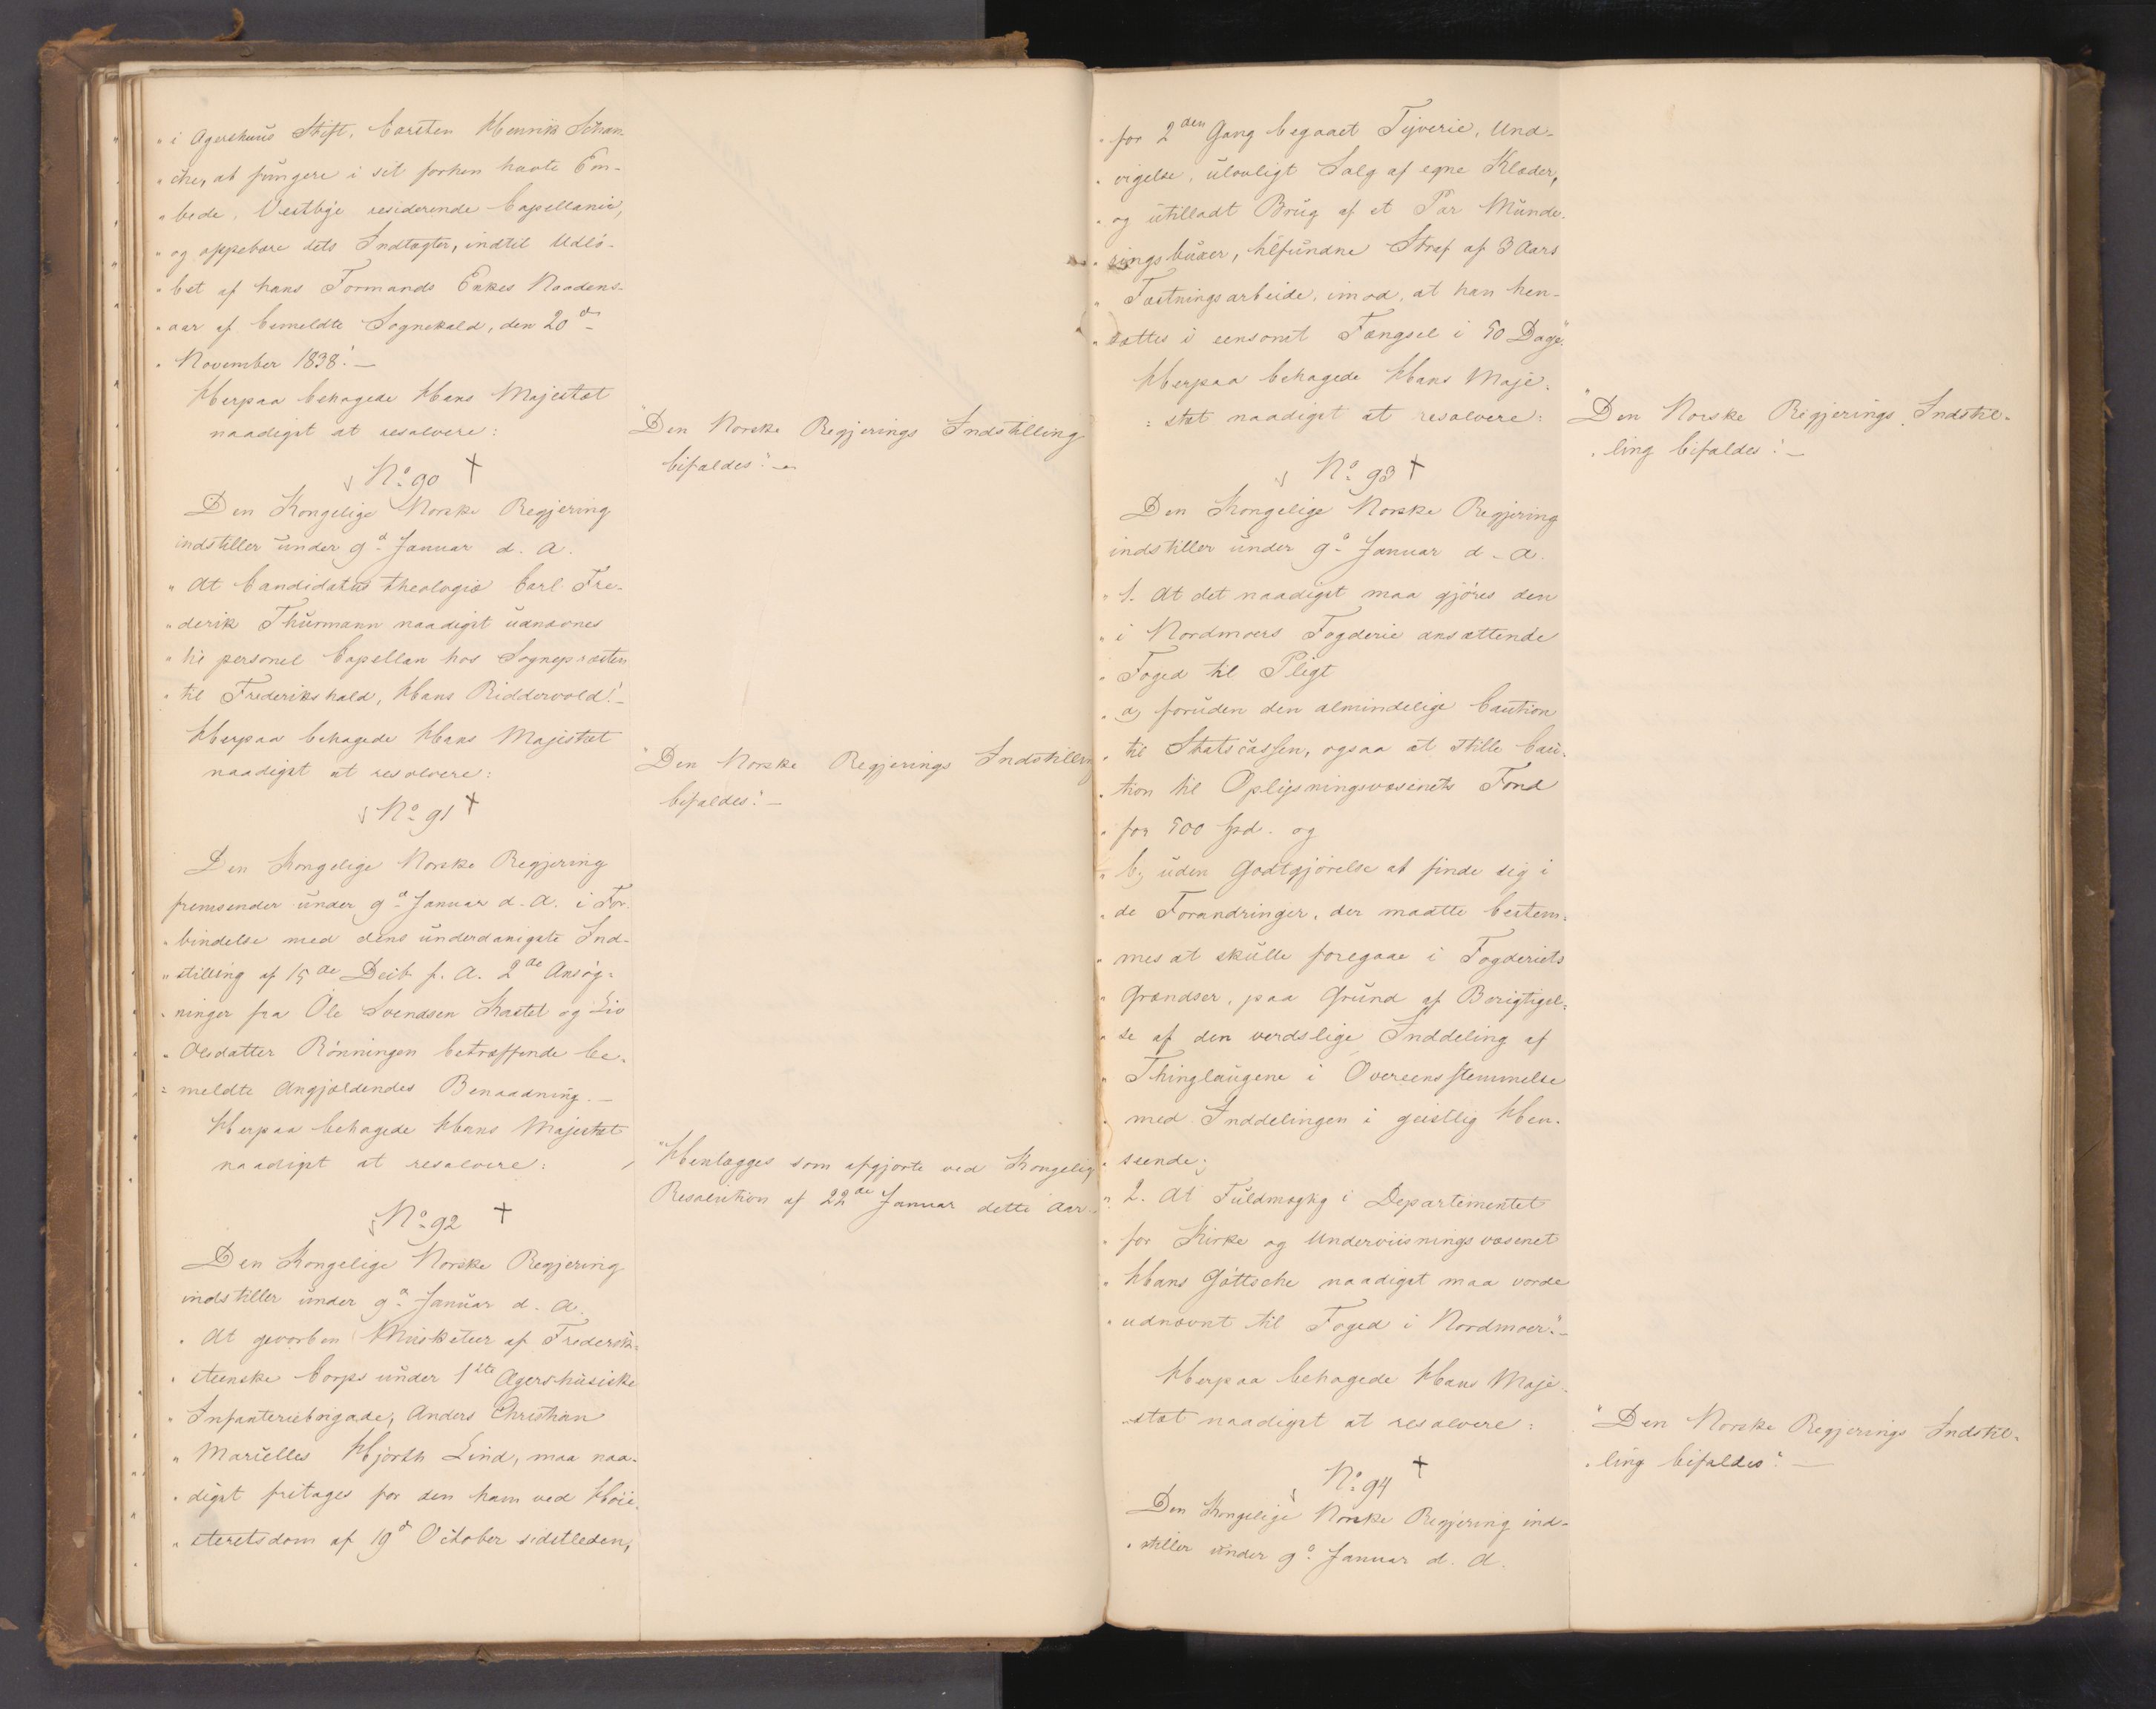 „i Agershuus Stift, Carsten Henrik Schan
„che, at fungere i sit forhen havte Em-
„bede, Vestbye residerende Capellanie,
„og oppebære dets Indtægter, indtil Udlö-
„bet af hans Formands Enkes Naadens-
„aar af bemeldte Sognekald, den 20de
„November 1838.“ —
Herpaa behagede Hans Majestæt
naadigst at resolvere:
„Den Norske Regjerings Indstilling
bifaldes.“ —
No 90 +
Den Kongelige Norske Regjering
indstiller under 9d Januar d. A.
„At Candidatus theologiæ Carl Fre-
„derik Thurmann naadigst udnævnes
„til personel Capellan hos Sognepræsten
„til Frederikshald, Hans Riddervold.“ —
Herpaa behagede Hans Majestæt
naadigst at resolvere:
„Den Norske Regjerings Indstilling
bifaldes.“ —
No 91 +
Den Kongelige Norske Regjering
fremsender under 9d Januar d. A. i For-
„bindelse med dens underdanigste Ind-
„stilling af 15de Decb. f. A. 2de Ansög-
„ninger fra Ole Svendsen Kastet og Liv
„Olsdatter Rönningen betræffende be-
„meldte Angjældendes Benaadning. —
Herpaa behagede Hans Majestæt
naadigst at resolvere:
„Henlægges som afgjorte ved Kongelig
Resolution af 22de Januar dette Aar.
No 92 +
Den Kongelige Norske Regjering
indstiller under 9d Januar d. A.
„At gevorben Musketeer af Frederik-
„steenske Corps under 1ste Agershusiske
„Infanteriebrigade, Anders Christian
„Marielles Hjorth Lind, maa naa-
„digst fritages for den ham ved Höie-
„steretsdom af 19d October sidstleden,
„for 2den Gang begaaet Tyverie, Und-
„vigelse, ulovligt Salg af egne Klæder,
„og utilladt Brug af et Par Munde-
„ringsbuxer, tilfundne Straf af 3 Aars
„Fæstningsarbeide, imod, at han hen-
„sættes i eensomt Fængsel i 50 Dage.“
Herpaa behagede Hans Maje-
stæt naadigst at resolvere:
„Den Norske Regjerings Indstil-
„ling bifaldes.“ —
No 93 +
Den Kongelige Norske Regjering
indstiller under 9d Januar d. A.
„1. At det naadigst maa gjöres den
„i Nordmoers Fogderie ansættende
„Foged til Pligt
„a, foruden den almindelige Caution
„til Statscassen, ogsaa at stille Cau-
„tion til Oplysningsvæsenets Fond
„for 500 Spd. og
„b, uden Godtgjörelse at finde sig i
„de Forandringer, der maatte bestem-
„mes at skulle foregaae i Fogderiets
„Grændser, paa Grund af Berigtigel-
„se af den verdslige Inddeling af
„Thinglaugene i Overeensstemmelse
„med Inddelingen i geistlig Hen-
„seende;
„2. At Fuldmægtig i Departementet
„for Kirke og Underviisningsvæsenet
„Hans Göttsche naadigst maa vorde
„udnævnt til Foged i Nordmoer.“ —
Herpaa behagede Hans Maje-
stæt naadigst at resolvere:
„Den Norske Regjerings Indstil-
„ling bifaldes.“ —
No 94 +
Den Kongelige Norske Regjering ind-
„stiller under 9d Januar d. A.